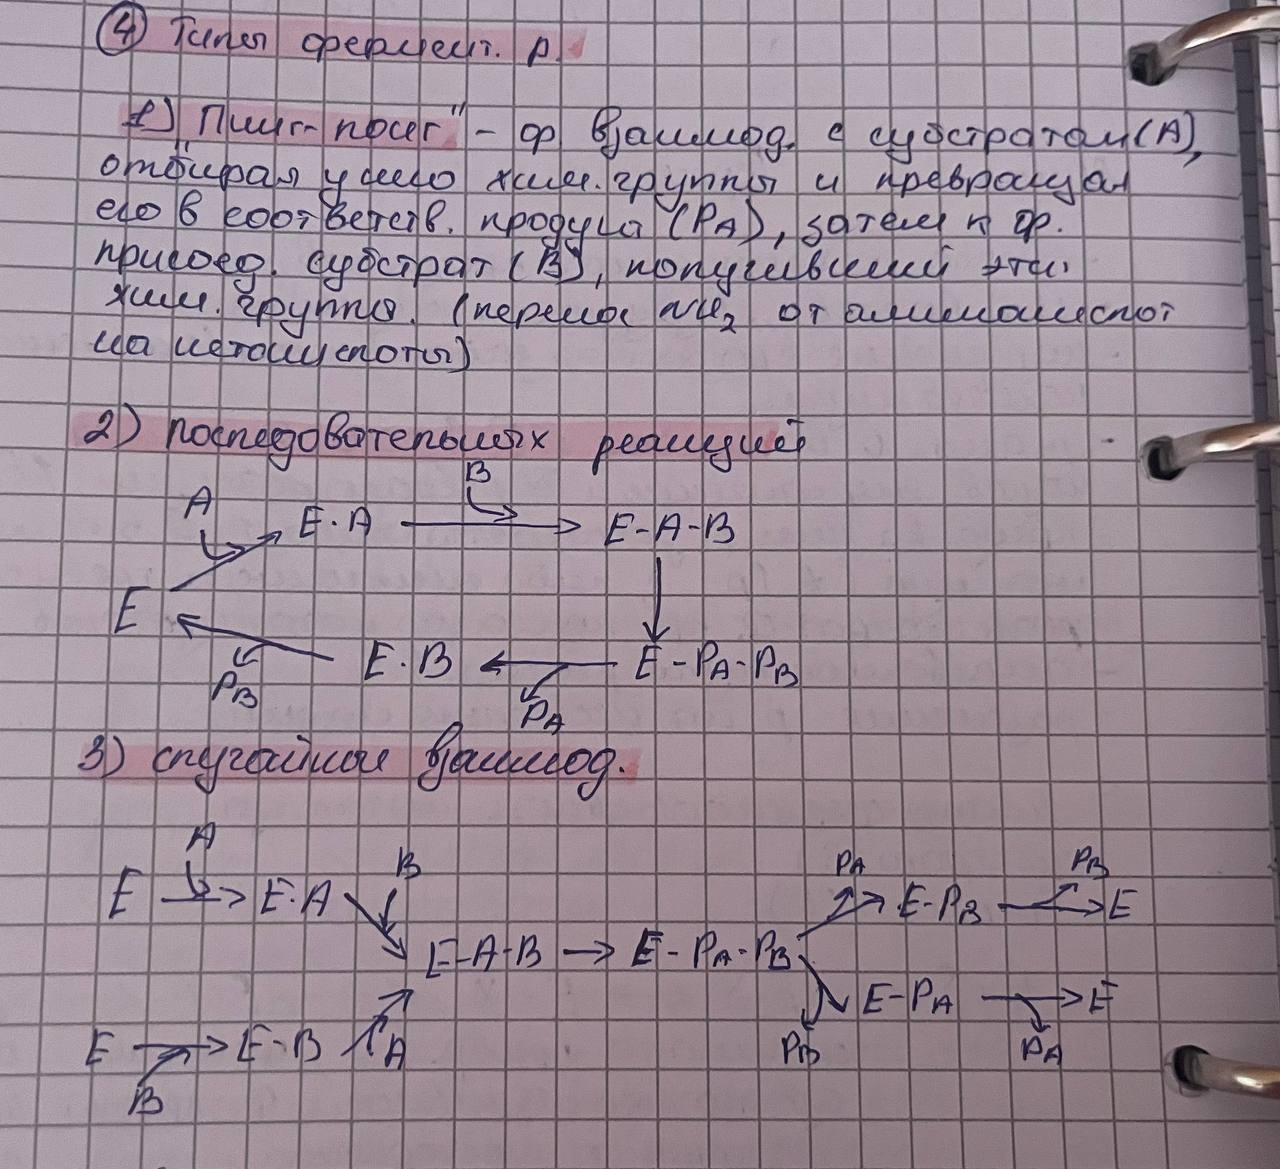 ④ Типы фермент. р.
1) „Пинг-понг" - ф взаимод. с субстратом (А),
отбирая у него хим. группы и превращая
его в соответств. продукт (PA), затем к ф.
присоед. субстрат (B), получивший эти
хим. группы. (перенос NH2 от аминокислот
на кетокислоты)
2) последовательных реакций
B
A E·A E-A-B
E
E·B E-PA-PB
PB PA
3) случайное взаимод.
A B PA PB
E E·A E-PB E
E-A-B → E-PA-PB
E-PA E
E E-B A PB PA
B